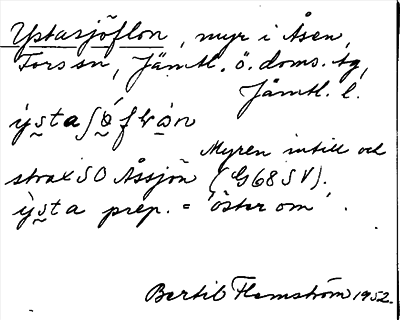 Ystasjöflon, myr i Åsen,
Fors sn, Jämtl. ö. doms. tg,
Jämtl. l.
Myren intill och
strax SO Åssjön (G68SV).
ÿsta prep. = 'öster om'.
Bertil Flemström 1952.